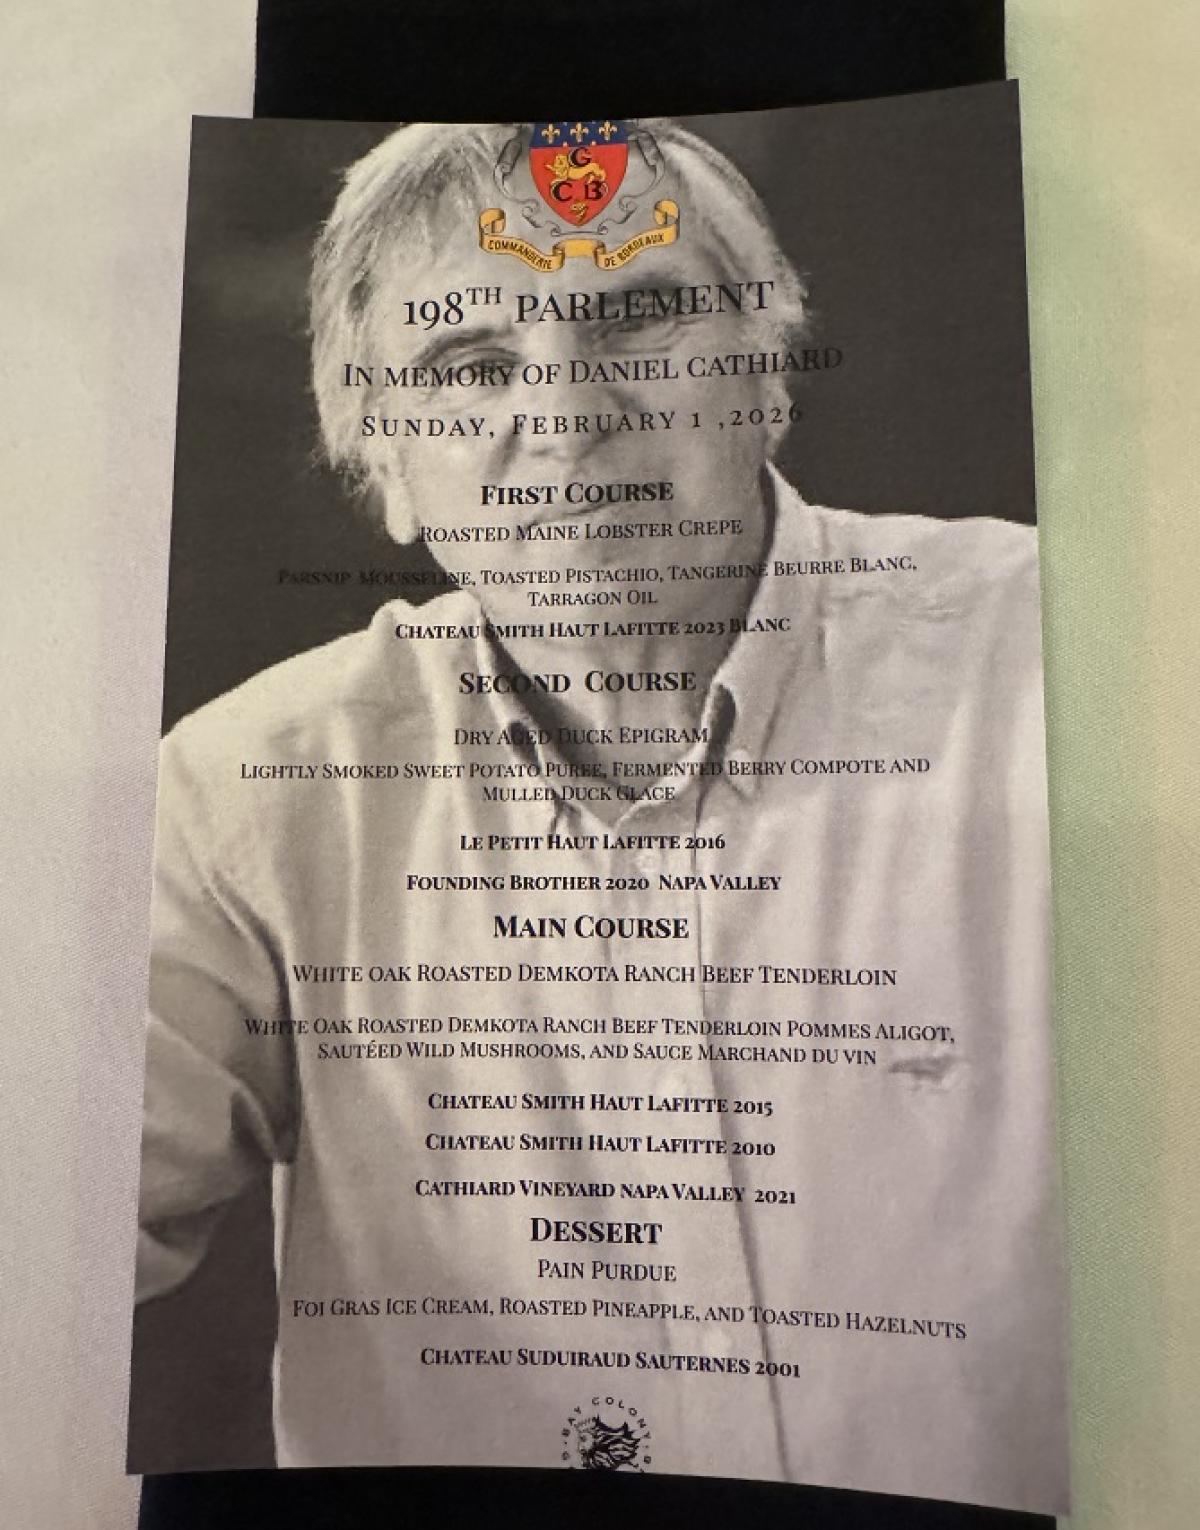 G
C B
COMMANDERIE DE BORDEAUX
198TH PARLEMENT
IN MEMORY OF DANIEL CATHIARD
SUNDAY, FEBRUARY 1 ,2026
FIRST COURSE
ROASTED MAINE LOBSTER CREPE
PARSNIP MOUSSELINE, TOASTED PISTACHIO, TANGERINE BEURRE BLANC,
TARRAGON OIL
CHATEAU SMITH HAUT LAFITTE 2023 BLANC
SECOND COURSE
DRY AGED DUCK EPIGRAM
LIGHTLY SMOKED SWEET POTATO PUREE, FERMENTED BERRY COMPOTE AND
MULLED DUCK GLACE
LE PETIT HAUT LAFITTE 2016
FOUNDING BROTHER 2020 NAPA VALLEY
MAIN COURSE
WHITE OAK ROASTED DEMKOTA RANCH BEEF TENDERLOIN
WHITE OAK ROASTED DEMKOTA RANCH BEEF TENDERLOIN POMMES ALIGOT,
SAUTÉED WILD MUSHROOMS, AND SAUCE MARCHAND DU VIN
CHATEAU SMITH HAUT LAFITTE 2015
CHATEAU SMITH HAUT LAFITTE 2010
CATHIARD VINEYARD NAPA VALLEY 2021
DESSERT
PAIN PURDUE
FOI GRAS ICE CREAM, ROASTED PINEAPPLE, AND TOASTED HAZELNUTS
CHATEAU SUDUIRAUD SAUTERNES 2001
BAY COLONY